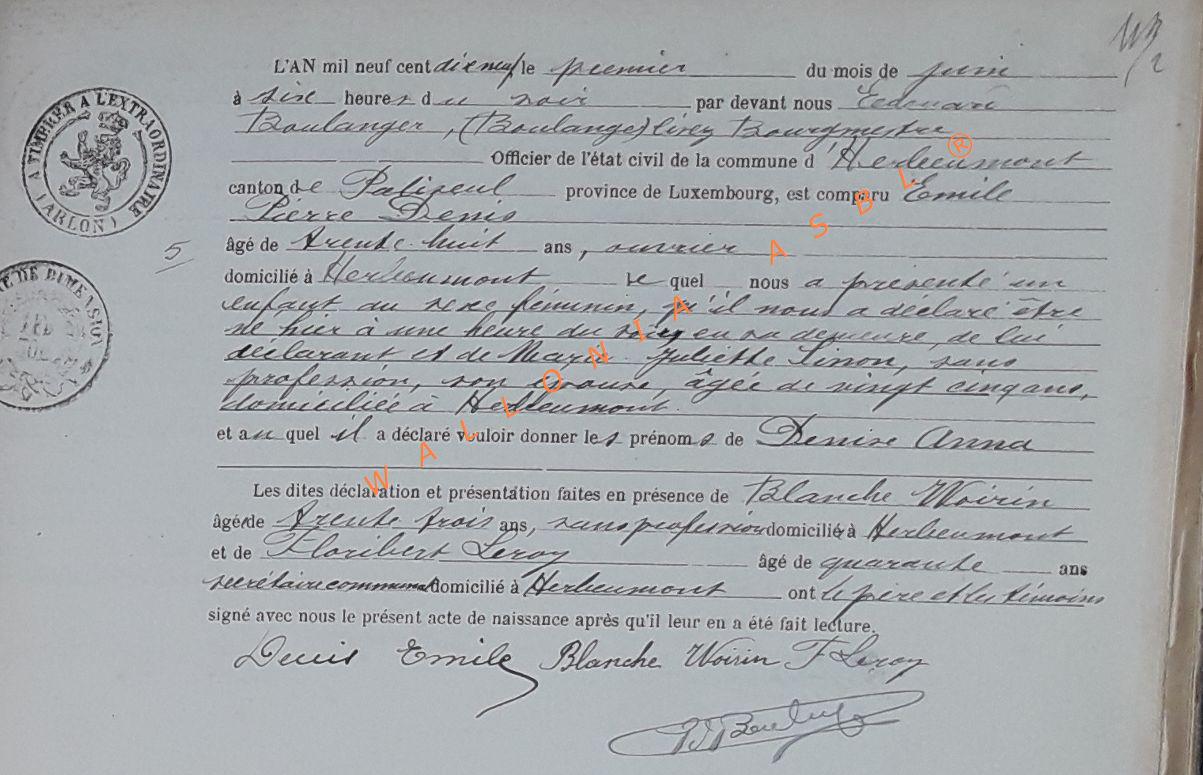 L'AN mil neuf cent dix neuf le premier du mois de juin
à six heures du soir par devant nous Edouard
Boulanger, (Boulange) Bourgmestre
Officier de l'état civil de la commune d'Herbeumont
canton de Paliseul province de Luxembourg, est comparu Emile
Pierre Denis
5
âgé de trente huit ans, ouvrier
domicilié à Herbeumont le quel nous a présenté un
enfant du sexe féminin, qu'il nous a déclaré être
né hier à une heure du soir en sa demeure, de lui
déclarant et de Marie Juliette Sinon, sans
profession, son épouse, âgée de vingt cinq ans,
domiciliée à Herbeumont.
et au quel il a déclaré vouloir donner les prénoms de Denise Anna
Les dites déclaration et présentation faites en présence de Blanche Woirin
âgée de trente trois ans, sans profession domiciliée à Herbeumont
et de Floribert Leroy âgé de quarante ans
secrétaire communal domicilié à Herbeumont ont le père et les témoins
signé avec nous le présent acte de naissance après qu'il leur en a été fait lecture.
Denis Emile Blanche Woirin F Leroy
A TIMBRER A L'EXTRAORDINAIRE
(ARLON)
DE DIMENSION
WALLONIA ASBL ®